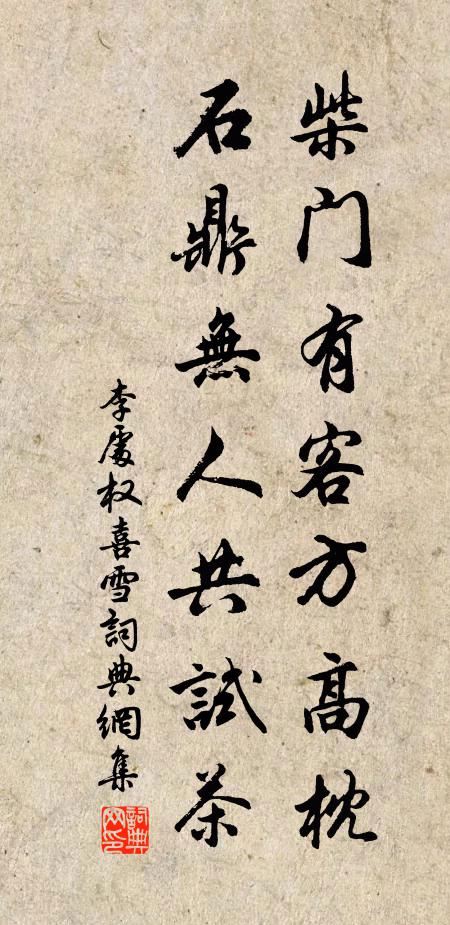 柴门有客方高枕
石鼎無人共試茶
李處权喜雪詞典網集
詞典网印